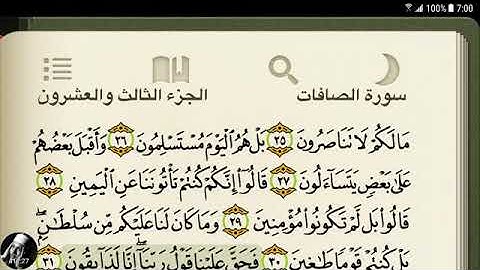 7:00
سورة الصافات
الجزء الثالث والعشرون
مَا لَكُمْ لَا تَنَاصَرُونَ ٢٥ بَلْ هُمُ ٱلْيَوْمَ مُسْتَسْلِمُونَ ٢٦ وَأَقْبَلَ بَعْضُهُمْ
عَلَىٰ بَعْضٍ يَتَسَآءَلُونَ ٢٧ قَالُوٓا۟ إِنَّكُمْ كُنتُمْ تَأْتُونَنَا عَنِ ٱلْيَمِينِ ٢٨
قَالُوا۟ بَل لَّمْ تَكُونُوا۟ مُؤْمِنِينَ ٢٩ وَمَا كَانَ لَنَا عَلَيْكُم مِّن سُلْطَٰنٍۭ ۖ
بَلْ كُنتُمْ قَوْمًا طَٰغِينَ ٣٠ فَحَقَّ عَلَيْنَا قَوْلُ رَبِّنَآ ۖ إِنَّا لَذَآئِقُونَ ٣١